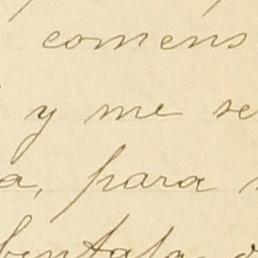 comens
y me se
a, para